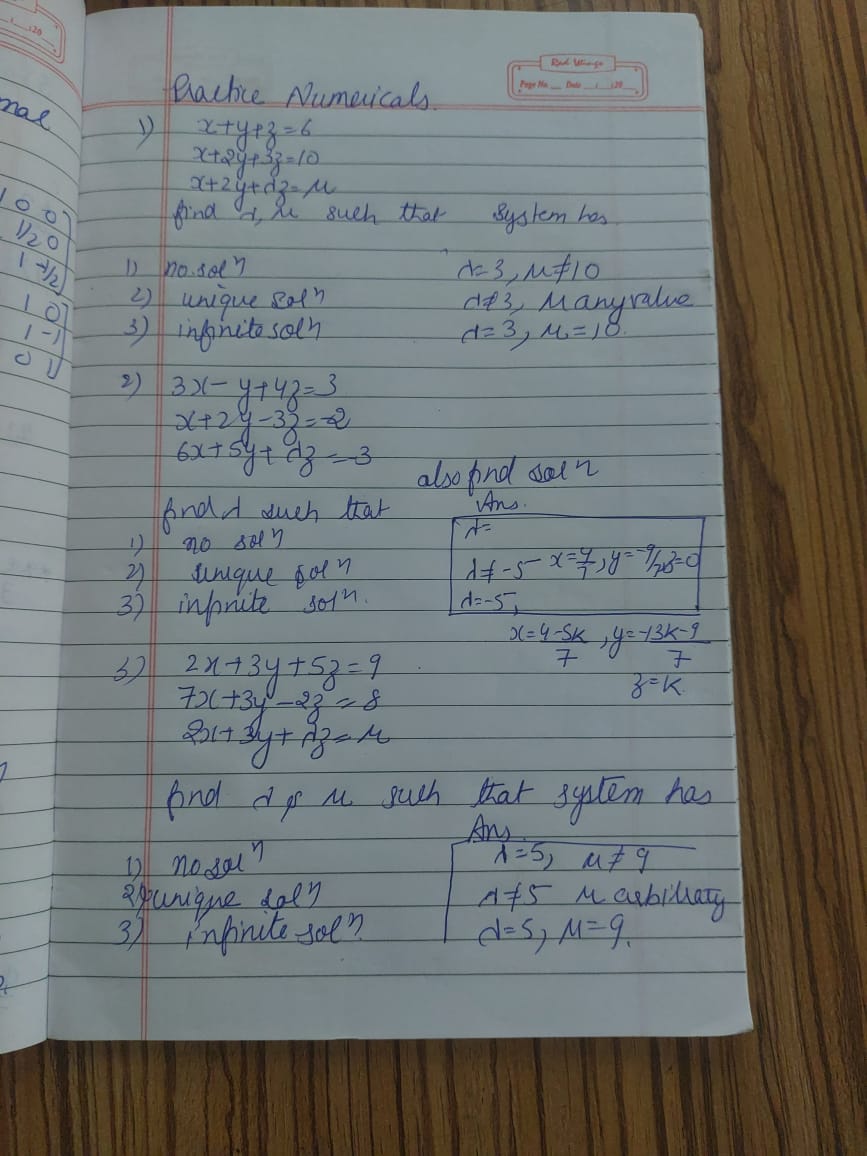 Red Wings
Page No. Date / / 20
Practice Numericals.
1) x+y+z=6
x+2y+3z=10
x+2y+λz=μ
find λ, μ such that system has
1) no. solⁿ λ=3, μ≠10
2) unique solⁿ λ≠3, μ any value
3) infinite solⁿ λ=3, μ=10.
2) 3x-y+4z=3
x+2y-3z=-2
6x+5y+λz=-3
also find solⁿ
find λ such that Ans.
1) no solⁿ λ=
2) unique solⁿ λ≠-5 x=4/7, y=-9/7, z=0
3) infinite solⁿ. λ=-5,
x=4-5k/7, y=-13k-9/7
z=k.
3) 2x+3y+5z=9
7x+3y-2z=8
2x+3y+λz=μ
find λ & μ such that system has
Ans.
1) no solⁿ λ=5, μ≠9
2) unique solⁿ λ≠5 μ arbitraty
3) infinite solⁿ. λ=5, μ=9.
nal
1 0 0
1/2 0
1 -1/2
1 0
1 -1
0 1